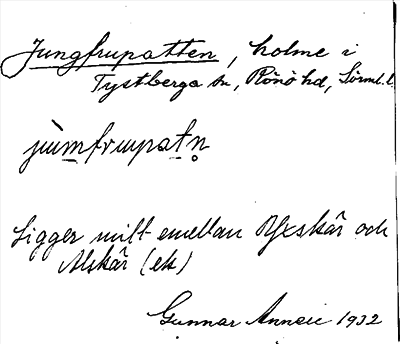 Jungfrupatten, holme i
Tystberga sn, Rönö hd, Sörml. l.
jùmfrupatn̥
Ligger mitt emellan Yxskär och
Alskär (ek)
Gunnar 1932